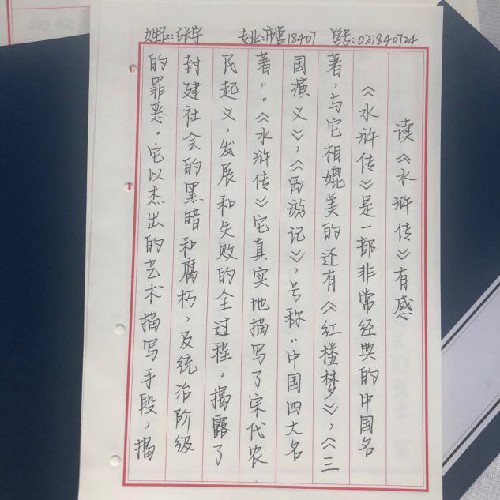 姓名:张宇 专业:市营18407 学号:031840724
读《水浒传》有感
《水浒传》是一部非常经典的中国名
著,与它相媲美的还有《红楼梦》,《三
国演义》,《西游记》,号称“中国四大名
著”。《水浒传》它真实地描写了宋代农
民起义,发展和失败的全过程。揭露了
封建社会的黑暗和腐朽,及统治阶级
的罪恶。它以杰出的艺术描写手段,揭